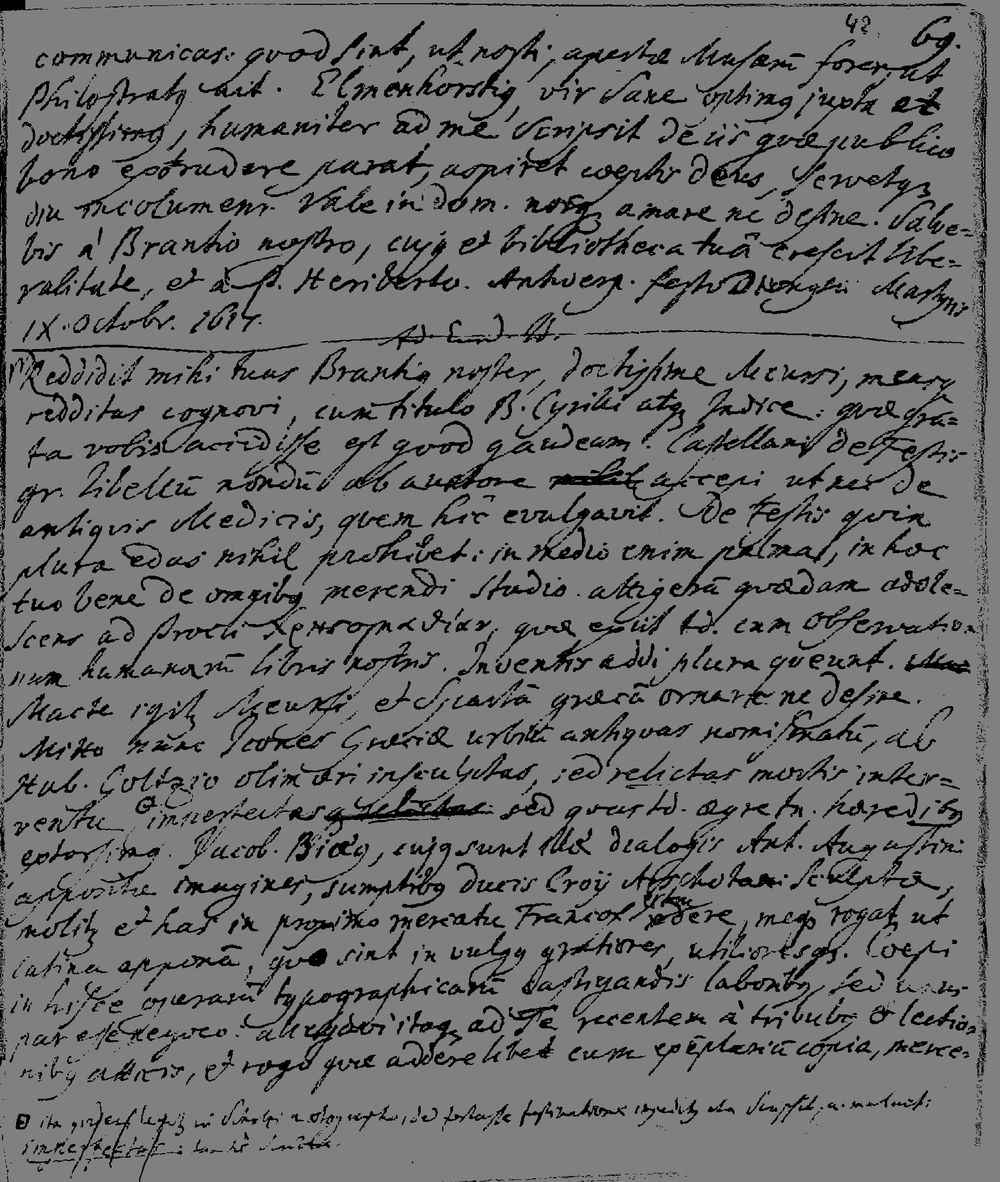 42. 69.
communicas: quod sint, ut nosti, apertæ Musarū fores, ut
Philostratq ait. Elmenhorstiq, vir sane optimq juxta et
doctissimq, humaniter ad me scripsit de iis quæ publico
bono extrudere parat, aspiret cœptis deus, servetqz
diu incolumem. Vale in dom. nosqz amare ne desine. Salve=
bis à Brantio nostro, cujq et bibliotheca tuâ crescit libe=
ralitate, et à P. Heriberto. Antwerp. festo Dionysii Martyris
IX. Octobr. 1617.
Ad Eund.
Reddidit mihi tuas Brantiq noster, doctissime Meursi, measqz
redditas cognovi, cum titulo B. Cyrilli atqz Indice: quæ gra=
ta vobis accidisse est quod gaudeam. Castellani de Festis
gr. libellū nondū ab auctore accepi ut nec de
antiquis Medicis, quem hîc evulgavit. De Festis quin
plura edas nihil prohibet: in medio enim palma, in hoc
tuo bene de omnibq merendi studio. attigerā quædam adole=
scens ad Procli χρηστομαθίαν, quæ exiit td. cum Observatio
num humanarū libris nostris. Inventis addi plura queunt.
Macte igitz Meursi, et Spartā græcā ornare ne desine.
Mitto nunc Icones Græciæ urbiū antiquas nomismatū, ab
Hub. Goltzio olim æri insculptas, sed relictas mortis inter=
ventu imperfectas sed quas td. ægre tn. hæredibq
extorsimq. Jacob. Biæq, cujq sunt illæ dialogis Ant. Augustini
appositæ imagines, sumptibq ducis Croÿ Arschotani sculptæ,
molitz et has in proximo mercatu Francof. edere, meqz rogat ut
latina apponā, quo sint in vulgq gratiores, utilioresqz. Coepi
in hisce operarū typographicarū castigandis laboribq, sed
par esse nequeo: allegavi itaqz ad Te recentem à tribubq & lectio=
nibq atticis, et rogo quæ addere libet cum exēplariū copia, merce=